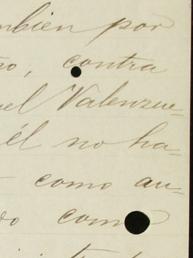 mbien por
ro, contra
el Valenzue-
él no ha-
como au-
do como